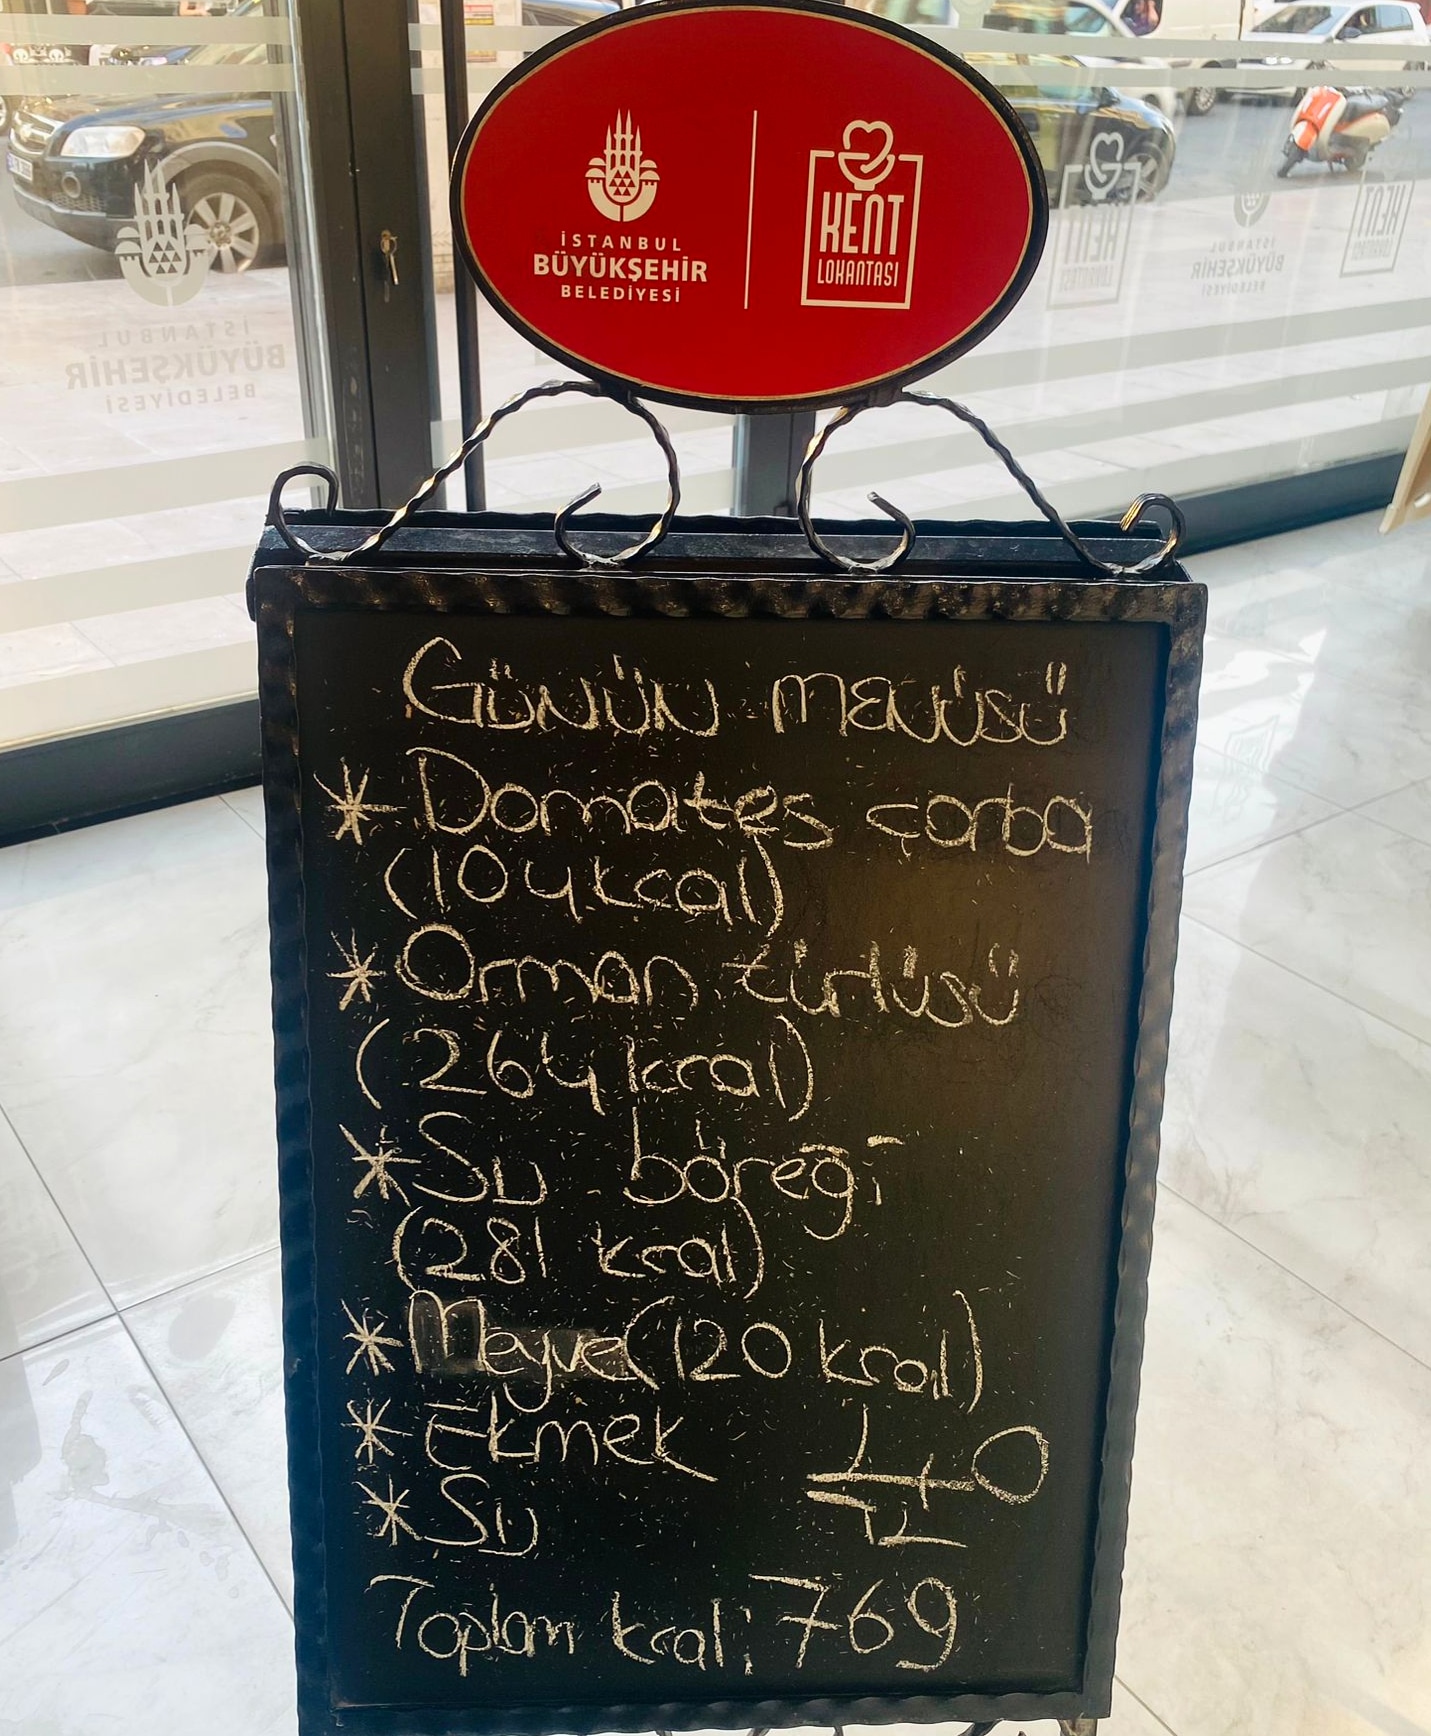 İSTANBUL
BÜYÜKŞEHİR
BELEDİYESİ
KENT
LOKANTASI
Günün menüsü
* Domates çorba
(104kcal)
* Orman türlüsü
(264 kcal)
* Su böreği
(281 kcal)
* Meyve (120 kcal)
* Ekmek
* Su
40
TL
Toplam kcal: 769
İSTANBUL
BÜYÜKŞEHİR
BELEDİYESİ
KENT
LOKANTASI
İSTANBUL
BÜYÜKŞEHİR
BELEDİYESİ
KENT
LOKANTASI